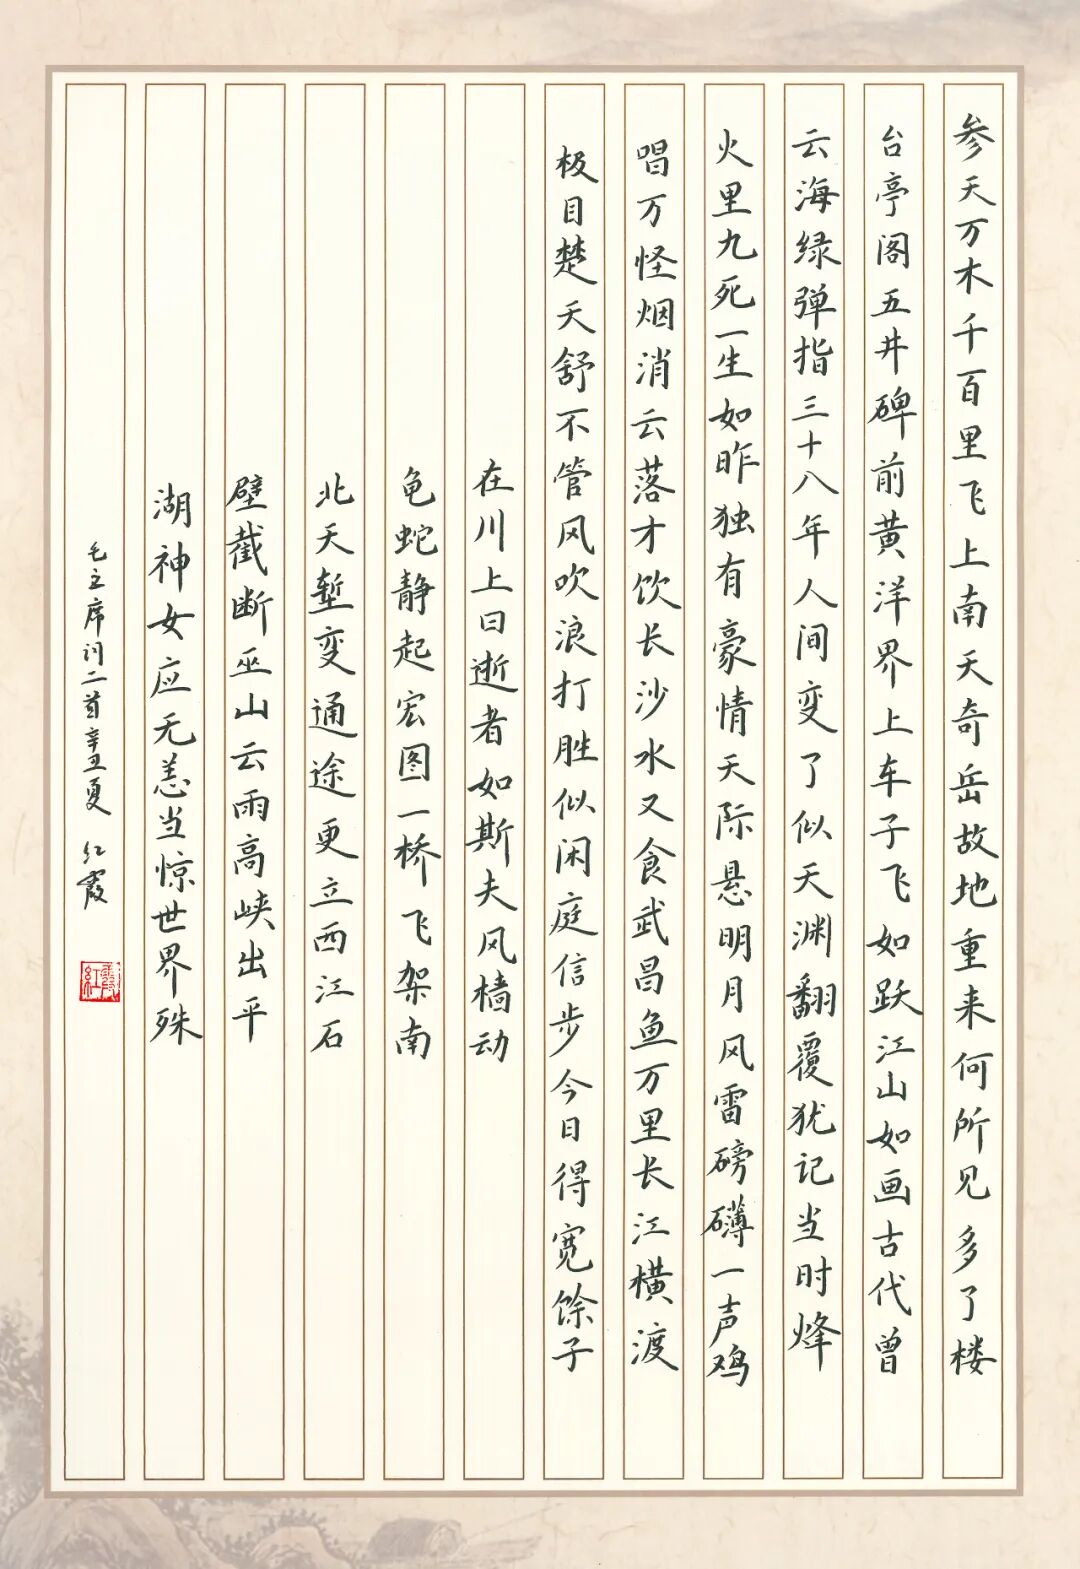 参天万木千百里飞上南天奇岳故地重来何所见多了楼
台亭阁五井碑前黄洋界上车子飞如跃江山如画古代曾
云海绿弹指三十八年人间变了似天渊翻覆犹记当时烽
火里九死一生如昨独有豪情天际悬明月风雷磅礴一声鸡
唱万怪烟消云落才饮长沙水又食武昌鱼万里长江横渡
极目楚天舒不管风吹浪打胜似闲庭信步今日得宽馀子
在川上曰逝者如斯夫风樯动
龟蛇静起宏图一桥飞架南
北天堑变通途更立西江石
壁截断巫山云雨高峡出平
湖神女应无恙当惊世界殊
毛主席词二首辛丑夏 红霞
紅霞